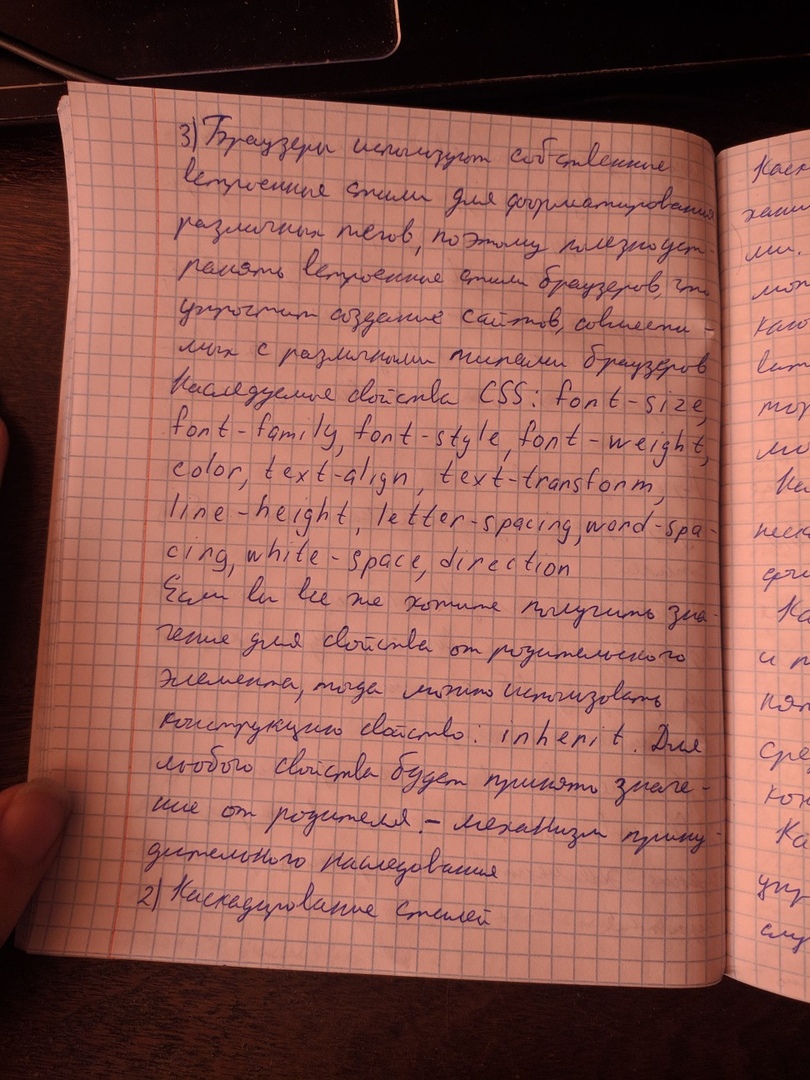 3) Браузеры используют собственные
встроенные стили для форматирования
различных тегов, поэтому полезно уст-
ранять встроенные стили браузеров, что
упростит создание сайтов, совмести-
мых с различными типами браузеров
Наследуемые свойства CSS: font-size,
font-family, font-style, font-weight,
color, text-align, text-transform,
line-height, letter-spacing, word-spa-
cing, white-space, direction
Если вы все же хотите получить зна-
чение для свойства от родительского
элемента, тогда можно использовать
конструкцию свойство: inherit. Для
любого свойства будет принять значе-
ние от родителя. - механизм прину-
дительного наследования
2) Каскадирование стилей
ми.
и п
сре
кон
Ка
упр
слу